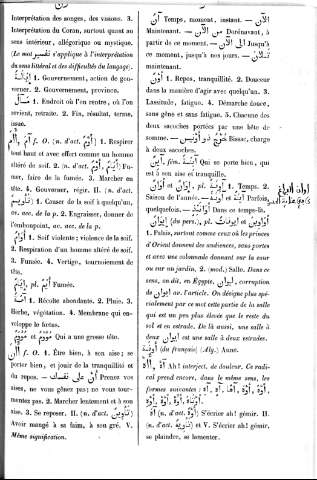 Interprétation des songes, des visions. 3.
Interprétation du Coran, surtout quant au
sens intérieur, allégorique ou mystique.
(Le mot تفسير s'applique à l'interprétation
du sens littéral et des difficultés du langage).
1. Gouvernement, action de gou-
verner. 2. Gouvernement, province.
مآل 1. Endroit où l'on rentre, où l'on
revient, retraite. 2. Fin, résultat, terme,
issue.
f. O. (n. d'act. أوم) 1. Respirer
tout haut et avec effort comme un homme
altéré de soif. 2. (n. d'act. إيام) Fu-
mer, faire de la fumée. 3. Marcher en
tête. 4. Gouverner, régir. II. (n. d'act.
تأويم) 1. Causer de la soif à quelqu'un,
av. acc. de la p. 2. Engraisser, donner de
l'embonpoint, av. acc. de la p.
أوام 1. Soif violente; violence de la soif.
2. Respiration d'un homme altéré de soif.
3. Fumée. 4. Vertige, tournoiement de
tête.
إيام pl. Fumée.
1. Récolte abondante. 2. Pluie. 3.
Herbe, végétation. 4. Membrane qui en-
veloppe le fœtus.
مؤوم Qui a une grosse tête.
آن f. O. 1. Être bien, à son aise; se
porter bien, et jouir de la tranquillité et
du repos. — أن على نفسك Prenez vos
aises, ne vous gênez pas; ne vous tour-
mentez pas. 2. Marcher lentement et à son
aise. 3. Se reposer. II. (n. d'act. تأوين)
Avoir mangé à sa faim, à son gré. V.
Même signification.
آن Temps, moment, instant. — الآن
Maintenant. — من الآن Dorénavant, à
partir de ce moment. — إلى الآن Jusqu'à
ce moment, jusqu'à nos jours. —
maintenant.
أون 1. Repos, tranquillité. 2. Douceur
dans la manière d'agir avec quelqu'un. 3.
Lassitude, fatigue. 4. Démarche douce,
sans gêne et sans fatigue. 5. Chacune des
deux sacoches portées par une bête de
somme. — خرج ذو أونين Bissac, charge
à deux sacoches.
آين, fém. آينة Qui se porte bien, qui
est à son aise et tranquille.
أوان et إوان, pl. آونة 1. Temps. 2.
Saison de l'année. — آونة et Parfois,
quelquefois. — Dans ce temps-là.
إيوان (du pers.), pl. إيوانات et أواوين
1. Palais, surtout comme ceux où les princes
d'Orient donnent des audiences, sans portes
et avec une colonnade donnant sur la cour
ou sur un jardin. 2. (mod.) Salle. Dans ce
sens, on dit, en Egypte, corruption
de إيوان av. l'article. On désigne plus spé-
cialement par ce mot cette partie de la salle
qui est un peu plus élevée que le reste du
sol et en estrade. De là aussi, une salle à
deux إيوان est une salle à deux estrades.
أونة (du français) (Alg.) Aune.
آه Ah! interject. de douleur. Ce radi-
cal prend encore, dans le même sens, les
formes suivantes:
آه (n. d'act. أوه) S'écrier ah! gémir. II.
(n. d'act. تأويه) et V. S'écrier ah! gémir,
se plaindre, se lamenter.